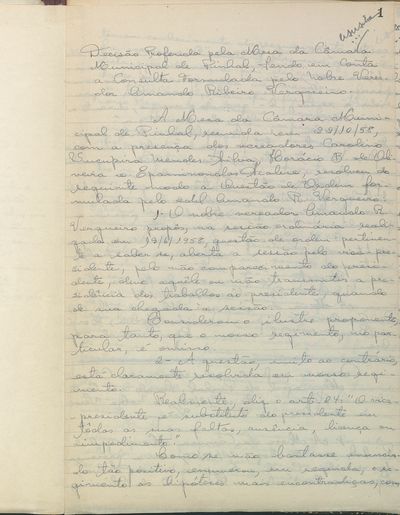 1
Decisão Proferida pela Mesa da Câmara
Municipal de Pinhal, tendo em conta
a Consulta Formulada pelo nobre Verea-
dor Amando Ribeiro Vergueiro.
A Mesa da Câmara Muni-
cipal de Pinhal, reunida em 22/10/58,
com a presença dos vereadores Carolino
Sucupira Mendes Silva, Horácio B. de Oli-
veira e Epaminondas, resolveu do
seguinte modo a Questão de Ordem for-
mulada pelo edil Amando R. Vergueiro:
1- O nobre vereador Amando R.
Vergueiro propôs, na sessão ordinária reali-
zada em 1958, questão de ordem pertinen-
te a saber se, aberta a sessão pelo vice-pre-
sidente, pelo não comparecimento do presi-
dente, deve aquele ou não transmitir a pre-
sidência dos trabalhos ao presidente, quando
de sua chegada à sessão.
o ilustre proponente,
para tanto, que o nosso regimento, no par-
ticular, é omisso.
2- A questão, muito ao contrário,
está claramente resolvida em nosso regi-
mento.
Realmente, diz o art. 24: "O vice-
presidente é substituto do presidente em
tôdas as suas faltas, ausência, licença ou
impedimento."
Como se não bastasse enuncia-
do tão positivo, enumerou, em seguida, o re-
gimento as hipóteses mais encontradiças, com